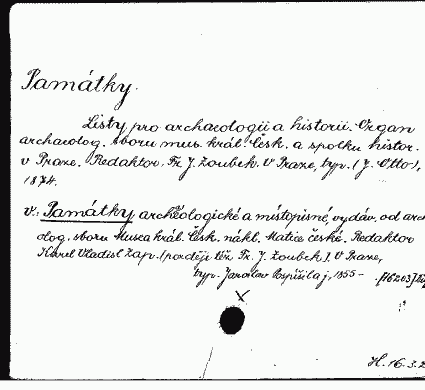 Památky.
Listy pro archaeologii a historii. Organ
archaeolog. sboru mus. král. Česk. a spolku histor.
v Praze. Redaktor. Fr. J. Zoubek. V Praze, typ. (J. Otto),
1874.
v.: Památky archeologické a místopisné, vydáv. od arch
olog. sboru Musea král. česk. nákl. Matice české. Redaktor
Karel Vladisl. Zap. (později též Fr. J. Zoubek). V Praze,
typ. Jaroslav Pospíšila j., 1855 –
H. 16.3.2